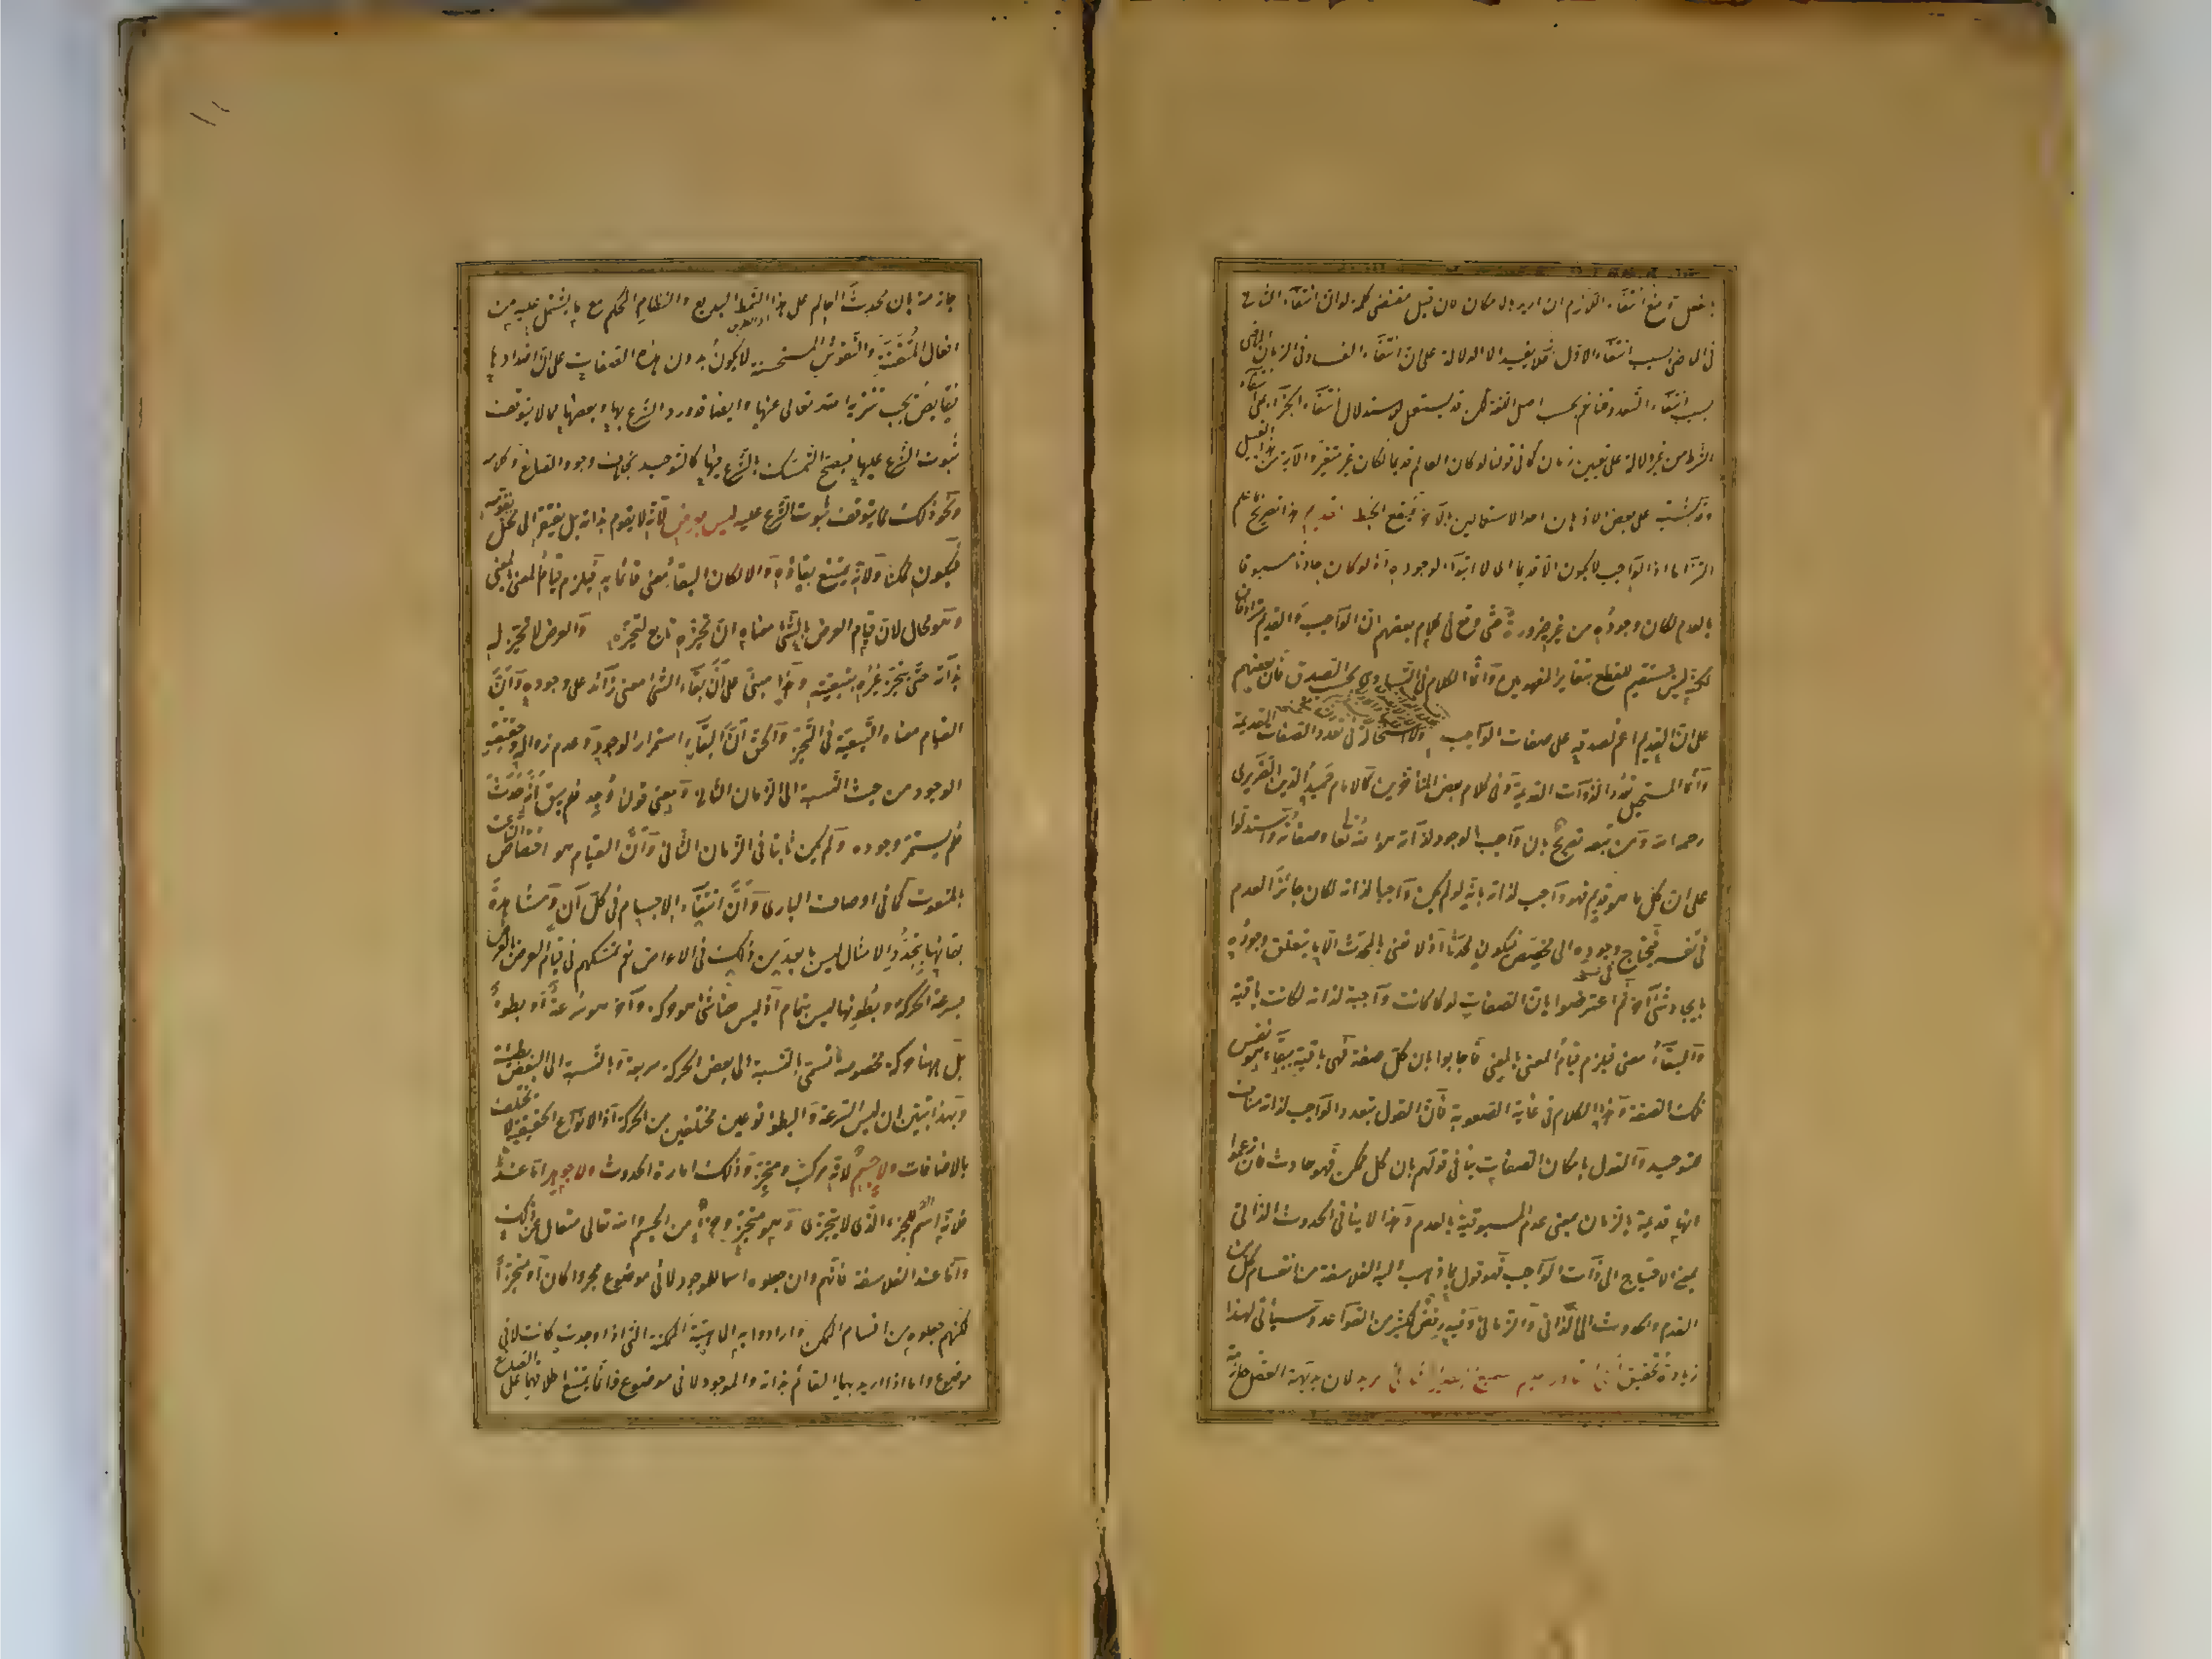 بالفعل ومنع انتفاء اللازم ان اريد بالامكان فان قيل مقتضى كلمة لو ان انتفاء الثانى
فى الماضى بسبب انتفاء الاول فلا يفيد الا الدلالة على ان انتفاء الفساد فى الزمان الماضى
بسبب انتفاء التعدد قلنا نعم بحسب اصل اللغة لكن قد يستعمل للاستدلال بانتفاء الجزاء على انتفاء
الشرط من غير دلالة على تعيين زمان كما فى قولنا لو كان العالم قديما لكان غير متغير والآية من هذا القبيل
وقد يشتبه على بعض الاذهان احد الاستعمالين بالآخر فيقع الخبط القديم هذا تصريح بما علم
التزاما اذ الواجب لا يكون الا قديما اى لا ابتداء لوجوده اذ لو كان حادثا مسبوقا
بالعدم لكان وجوده من غيره ضرورة حتى وقع فى كلام بعضهم ان الواجب والقديم مترادفان
لكنه ليس بمستقيم للقطع بتغاير المفهومين وانما الكلام فى التساوى بحسب الصدق فان بعضهم
على ان القديم اعم لصدقه على صفات الواجب ولا استحالة فى تعدد الصفات القديمة
وانما المستحيل تعدد الذوات القديمة وفى كلام بعض المتأخرين كالامام حميد الدين الضريرى
رحمه الله ومن تبعه تصريح بان واجب الوجود لذاته هو الله تعالى وصفاته واستدلوا
على ان كل ما هو قديم فهو واجب لذاته بانه لو لم يكن واجبا لذاته لكان جائز العدم
فى نفسه فيحتاج فى وجوده الى مخصص فيكون محدثا اذ لا نعنى بالمحدث الا ما يتعلق وجوده
بايجاد شئ آخر ثم اعترضوا بان الصفات لو كانت واجبة لذاته لكانت باقية
والبقاء معنى فيلزم قيام المعنى بالمعنى فاجابوا بان كل صفة فهى باقية ببقاء هو نفس
تلك الصفة وهذا الكلام فى غاية الصعوبة فان القول بتعدد الواجب لذاته مناف
للتوحيد والقول بامكان الصفات ينافى قولهم بان كل ممكن فهو حادث فان زعموا
انها قديمة بالزمان بمعنى عدم المسبوقية بالعدم وهذا لا ينافى الحدوث الذاتى
بمعنى الاحتياج الى ذات الواجب فهو قول بما ذهب اليه الفلاسفة من انقسام كل من
القدم والحدوث الى الذاتى والزمانى وفيه رفض كثير من القواعد وسيأتى لهذا
زيادة تحقيق الحى القادر العليم السميع البصير الشائى المريد لان بديهة العقل جازمة
جازمة بان محدث العالم على هذا النمط البديع والنظام المحكم مع ما يشتمل عليه من
افعال المتقنة والنقوش المستحسنة لا يكون بدون هذه الصفات على ان اضدادها
نقايص يجب تنزيه الله تعالى عنها وايضا قد ورد الشرع بها وبعضها مما لا يتوقف
ثبوت الشرع عليها فيصح التمسك بالشرع فيها كالتوحيد بخلاف وجود الصانع وكلامه
ونحو ذلك مما يتوقف ثبوت الشرع عليه ليس بعرض لانه لا يقوم بذاته بل يفتقر الى محل يقومه
فيكون ممكنا ولانه يمتنع بقاؤه والا لكان البقاء معنى قائما به فيلزم قيام المعنى بالمعنى
وهو محال لان قيام العرض بالشئ معناه ان تحيزه تابع لتحيزه والعرض لا تحيز له
بذاته حتى يتحيز غيره بتبعيته وهذا مبنى على ان بقاء الشئ معنى زائد على وجوده وان
القيام معناه التبعية فى التحيز والحق ان البقاء استمرار الوجود وعدم زواله وحقيقته
الوجود من حيث النسبة الى الزمان الثانى ومعنى قولنا وجد فلم يبق انه حدث
فلم يستمر وجوده ولم يكن ثابتا فى الزمان الثانى وان القيام هو اختصاص الناعت
بالمنعوت كما فى اوصاف البارى وان انتفاء الاجسام فى كل آن ومشاهدة
بقائها بتجدد الامثال ليس بابعد من ذلك فى الاعراض نعم تمسكهم فى قيام العرض بالعرض
بسرعة الحركة وبطوئها ليس بتمام اذ ليس هنا شئ هو حركة وآخر هو سرعة او بطوء
بل ههنا حركة مخصوصة تسمى بالنسبة الى بعض الحركة سريعة وبالنسبة الى البعض بطيئة
وبهذا تبين ان ليس السرعة والبطوء نوعين مختلفين من الحركة اذ الانواع الحقيقية لا تختلف
بالاضافات ولا جسم لانه مركب ومتحيز وذلك امارة الحدوث ولا جوهر اما عندنا
فلانه اسم للجزء الذى لا يتجزى وهو متحيز وجزء من الجسم والله تعالى متعال عن ذلك
واما عند الفلاسفة فانهم وان جعلوه اسما للموجود لا فى موضوع مجردا كان او متحيزا
لكنهم جعلوه من اقسام الممكن وارادوا به الماهية الممكنة التى اذا وجدت كانت لا فى
موضوع واما اذا اريد بهما القائم بذاته والموجود لا فى موضوع فانما يمتنع اطلاقهما على الصانع